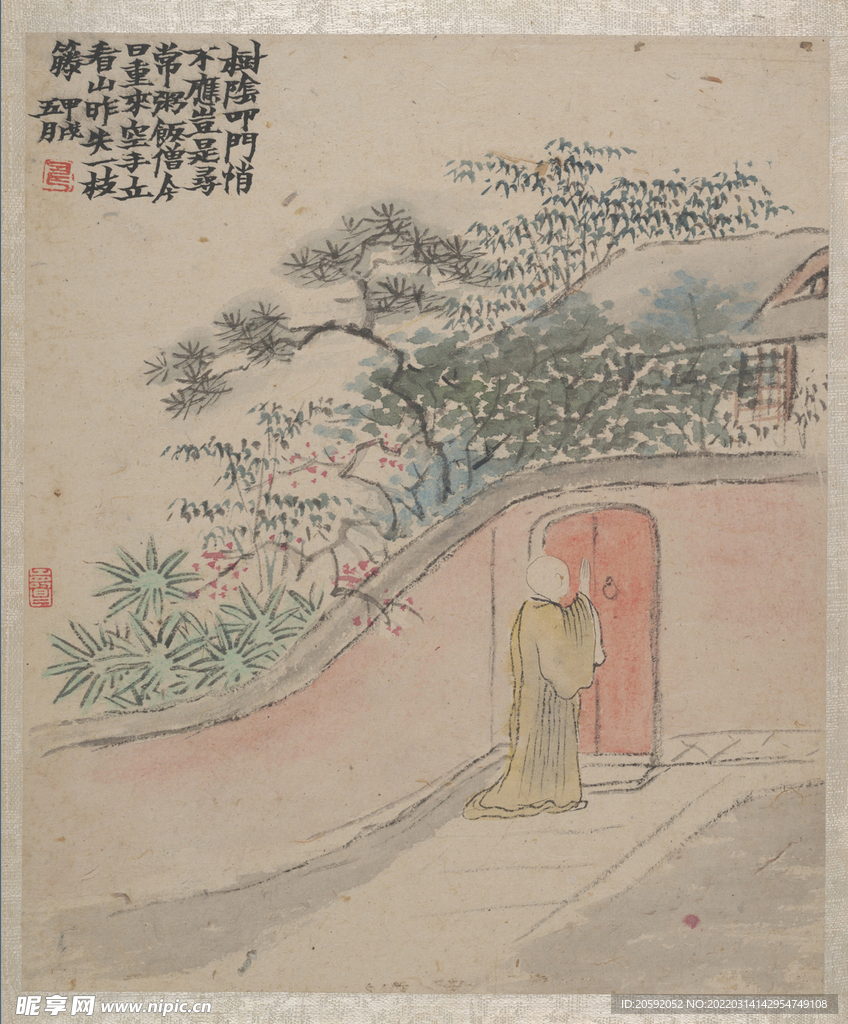 樹陰叩門悄
不應豈是尋
常粥飯僧今
日重來空手立
看山昨失一枝
籐
甲戌
五月
昵享网 www.nipic.cn
ID:20592052 NO:20220314142954749108